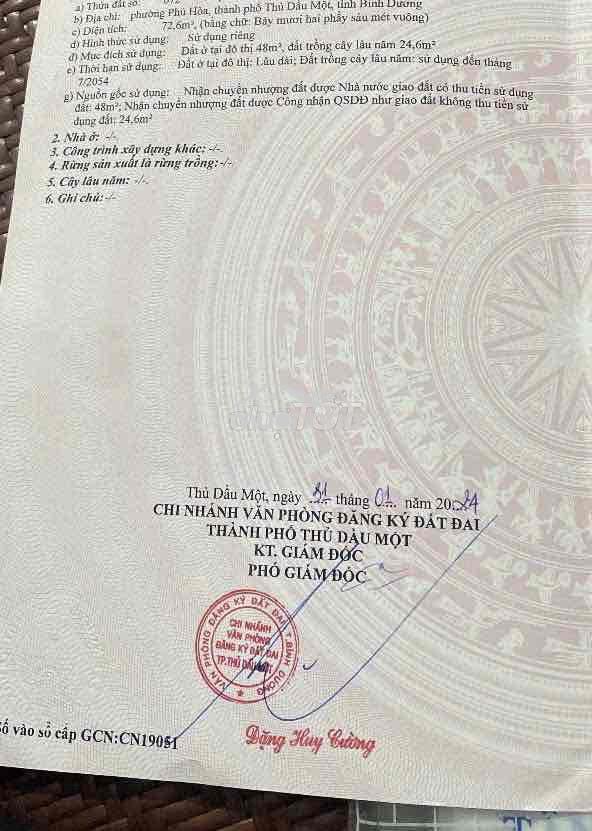 a) Thửa đất số:
b) Địa chỉ: phường Phú Hòa, thành phố Thủ Dầu Một, tỉnh Bình Dương
c) Diện tích: 72,6m², (bằng chữ: Bảy mươi hai phẩy sáu mét vuông)
d) Hình thức sử dụng: Sử dụng riêng
đ) Mục đích sử dụng: Đất ở tại đô thị 48m², đất trồng cây lâu năm 24,6m²
e) Thời hạn sử dụng: Đất ở tại đô thị: Lâu dài; Đất trồng cây lâu năm: sử dụng đến tháng
7/2054
g) Nguồn gốc sử dụng: Nhận chuyển nhượng đất được Nhà nước giao đất có thu tiền sử dụng
đất: 48m²; Nhận chuyển nhượng đất được Công nhận QSDĐ như giao đất không thu tiền sử
dụng đất: 24,6m²
2. Nhà ở: -/-
3. Công trình xây dựng khác: -/-
4. Rừng sản xuất là rừng trồng:-/-
5. Cây lâu năm: -/-
6. Ghi chú:-/-
chợTỐT
Thủ Dầu Một, ngày 31 tháng 01 năm 2024
CHI NHÁNH VĂN PHÒNG ĐĂNG KÝ ĐẤT ĐAI
THÀNH PHỐ THỦ DẦU MỘT
KT. GIÁM ĐỐC
PHÓ GIÁM ĐỐC
VĂN PHÒNG ĐĂNG KÝ ĐẤT ĐAI T.BÌNH DƯƠNG
CHI NHÁNH
VĂN PHÒNG
ĐĂNG KÝ ĐẤT ĐAI
TP.THỦ DẦU MỘT
Đặng Huy Cường
Số vào sổ cấp GCN:CN19051